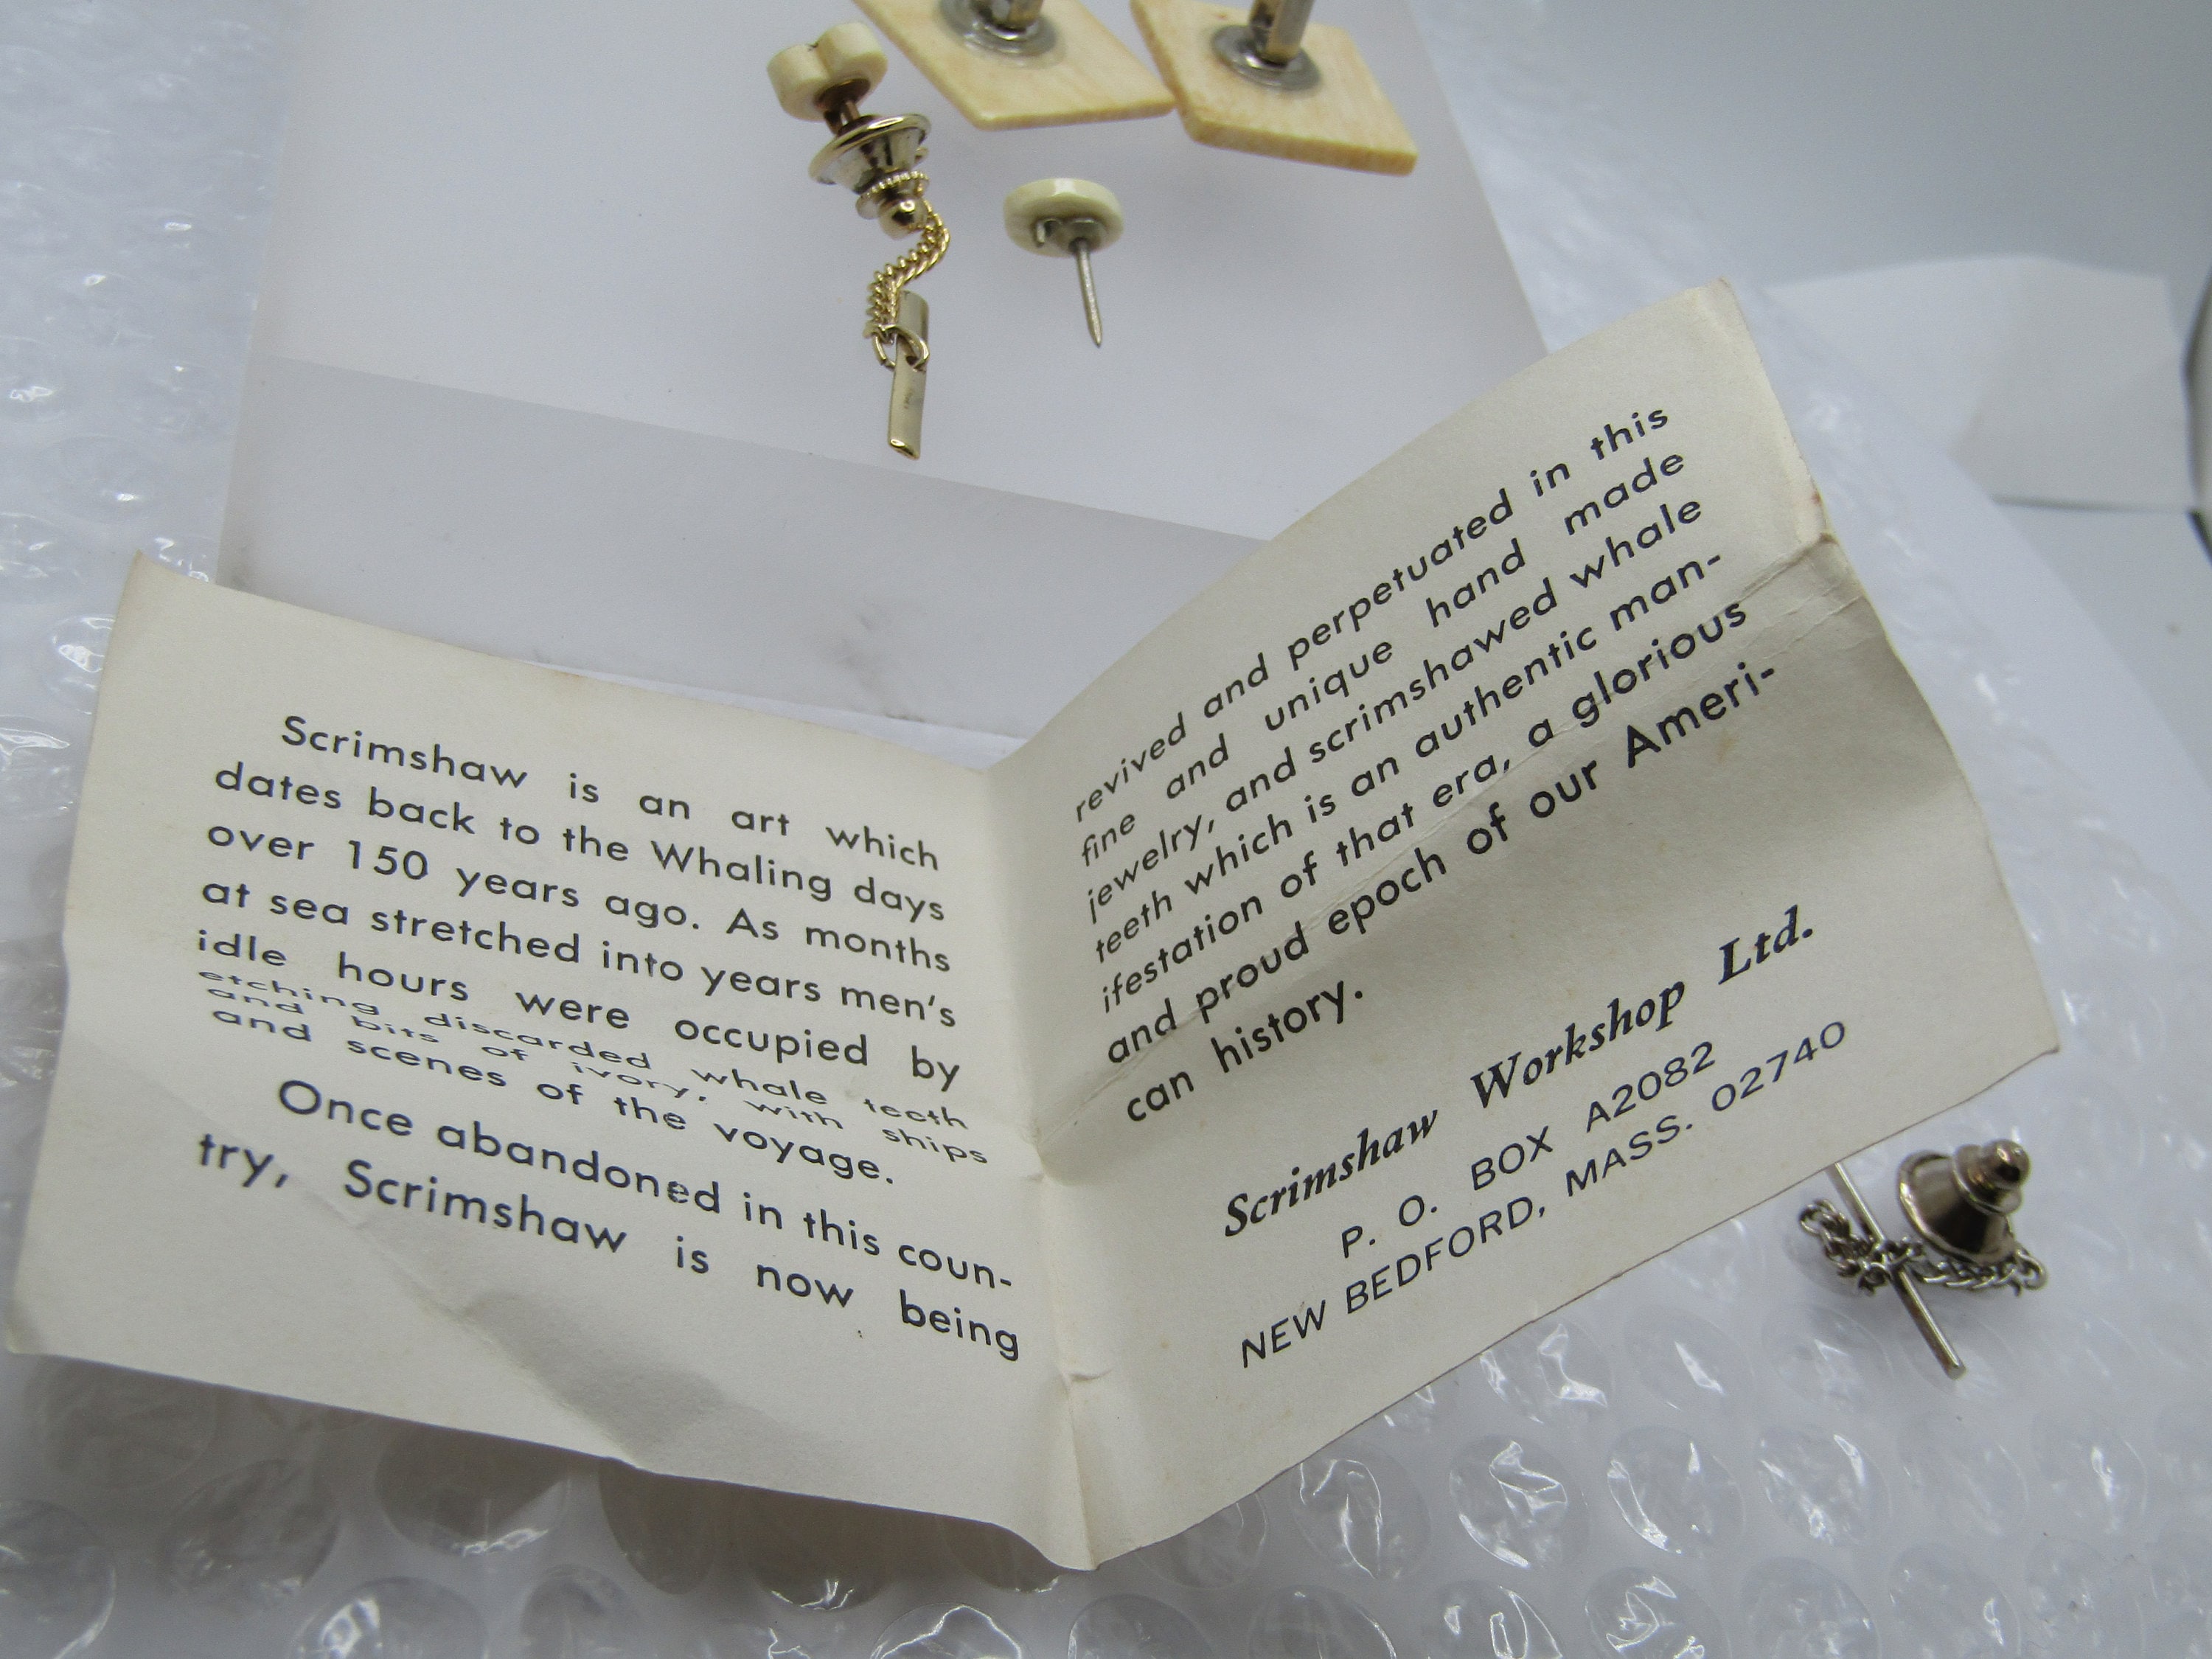 Scrimshaw is an art which
dates back to the Whaling days
over 150 years ago. As months
at sea stretched into years men's
idle hours were occupied by
etching discarded whale teeth
and bits of ivory, with ships
and scenes of the voyage.
Once abandoned in this coun-
try, Scrimshaw is now being
revived and perpetuated in this
fine and unique hand made
jewelry, and scrimshawed whale
teeth which is an authentic man-
ifestation of that era, a glorious
and proud epoch of our Ameri-
can history.
Scrimshaw Workshop Ltd.
P. O. BOX A2082
NEW BEDFORD, MASS. 02740